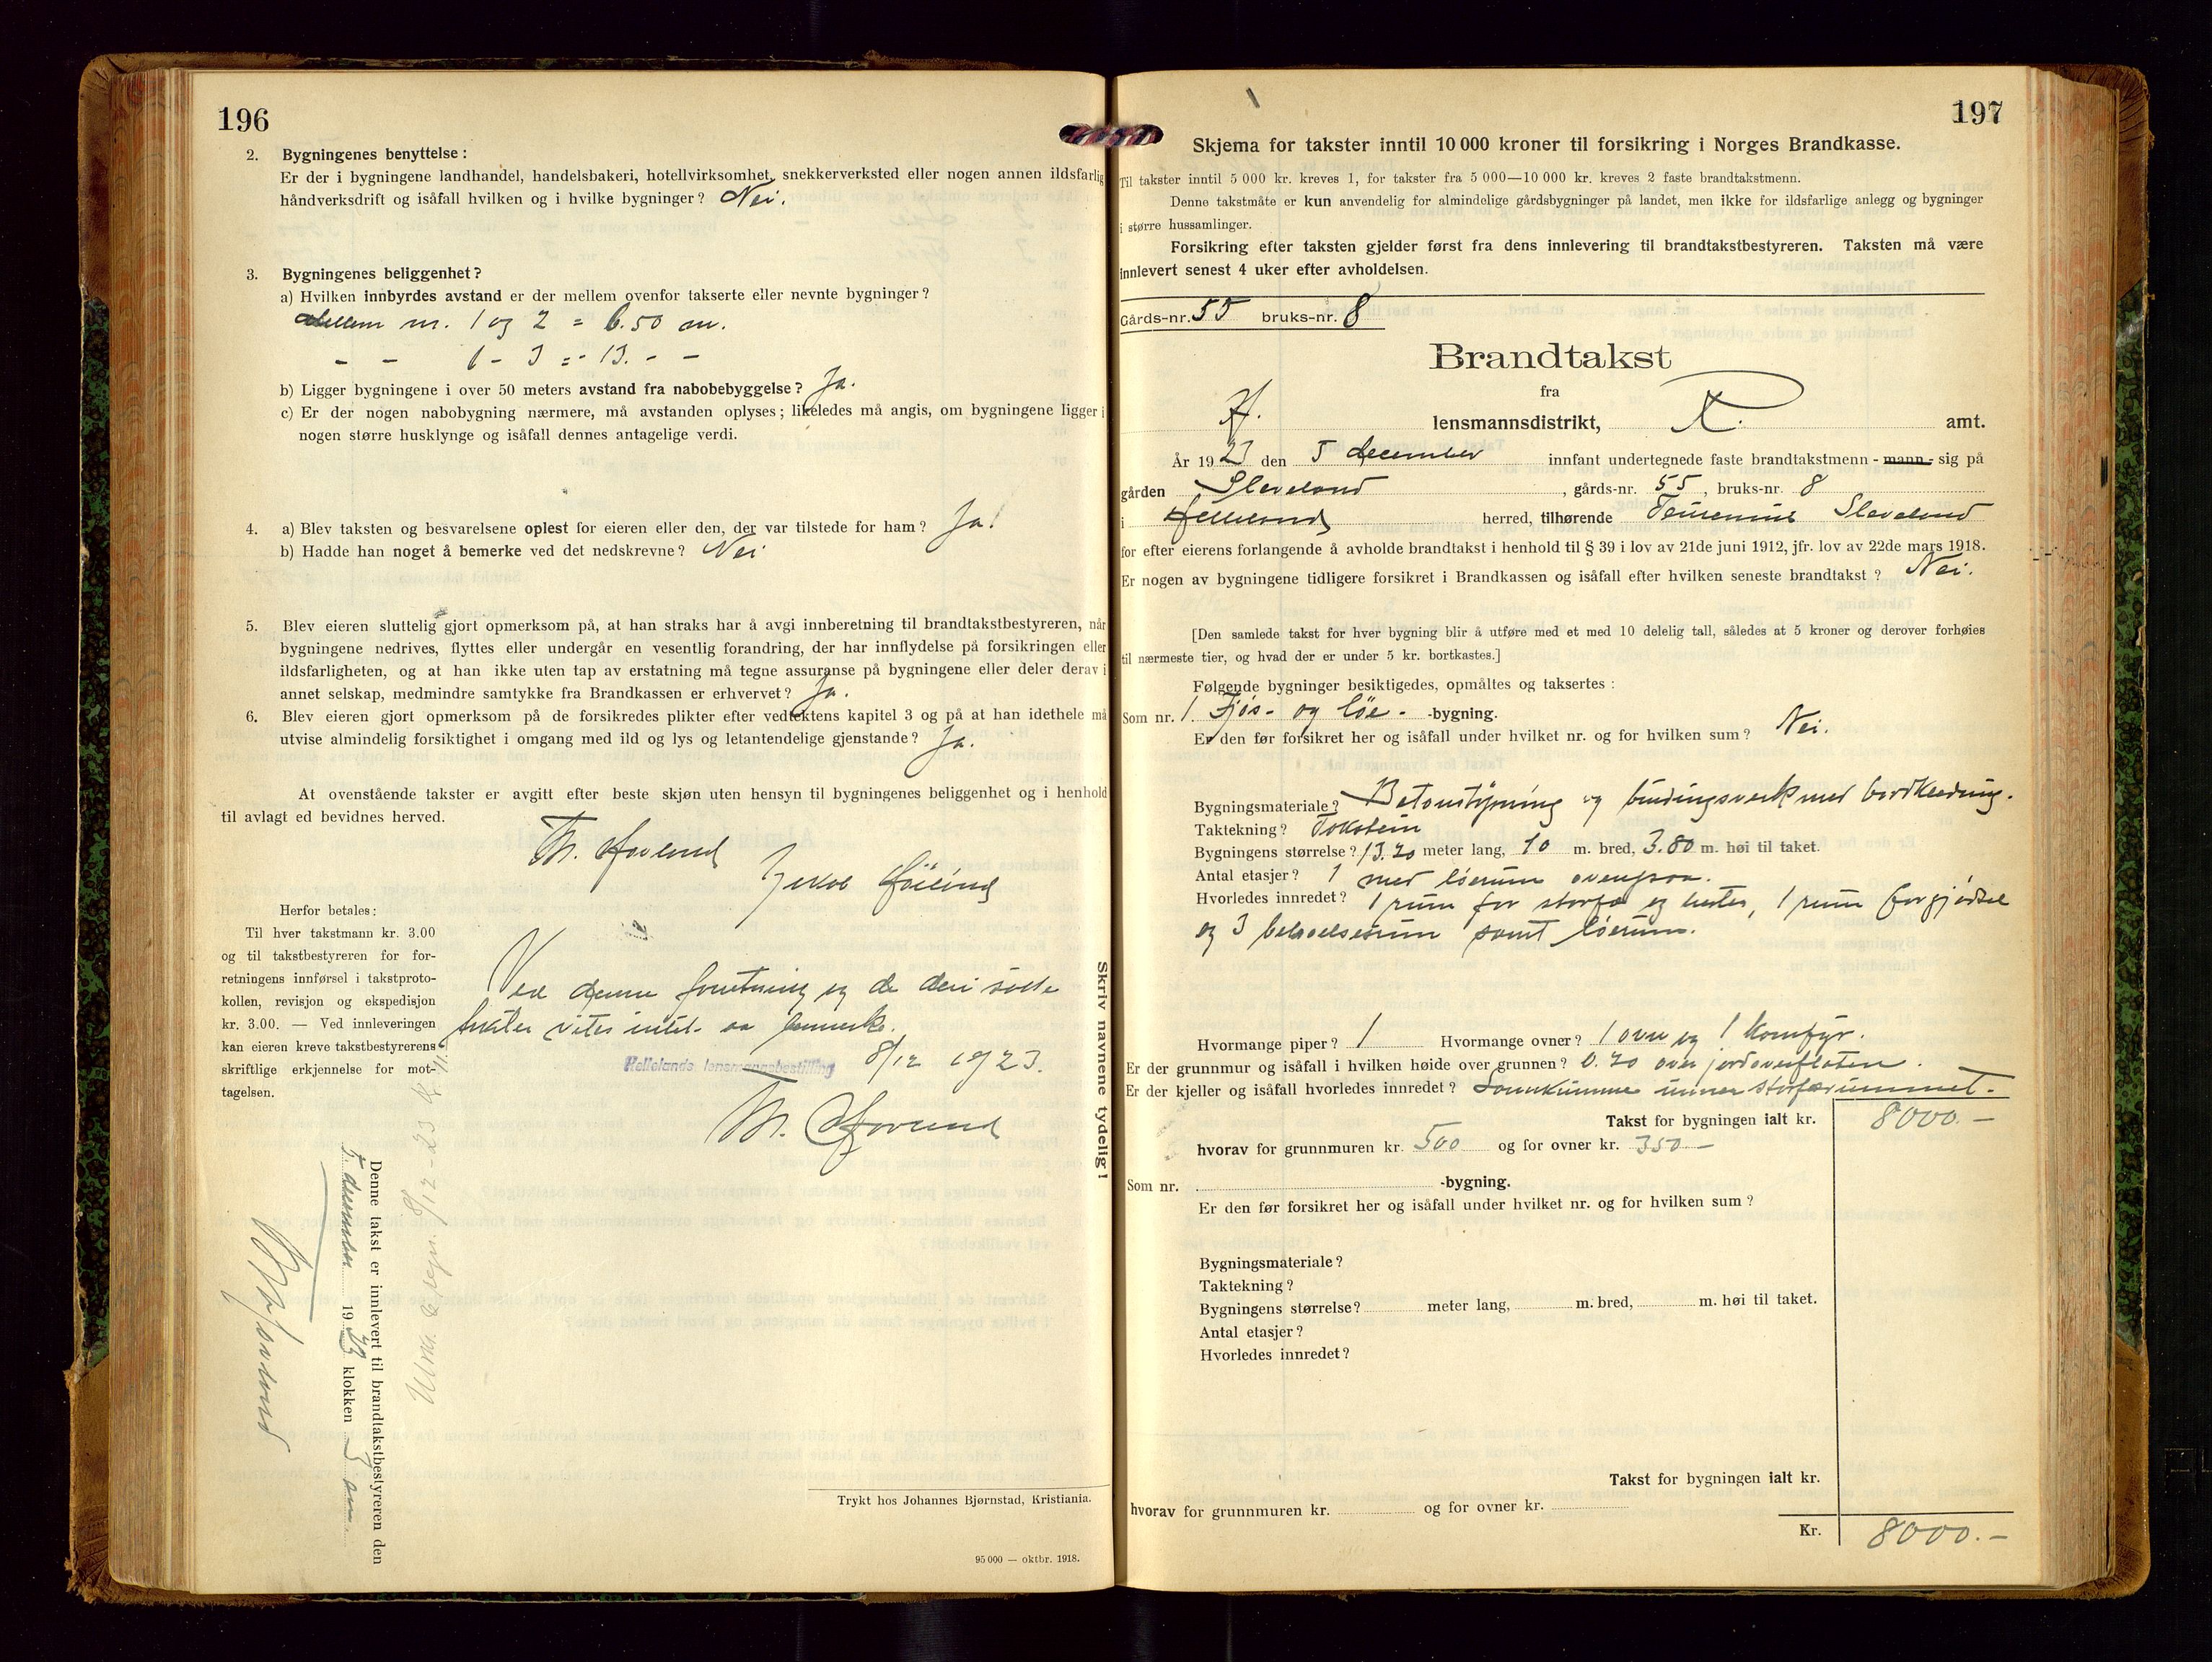 196
2. Bygningenes benyttelse:
Er der i bygningene landhandel, handelsbakeri, hotellvirksomhet, snekkerverksted eller nogen annen ildsfarlig
håndverksdrift og isåfall hvilken og i hvilke bygninger? Nei.
3. Bygningenes beliggenhet?
a) Hvilken innbyrdes avstand er der mellem ovenfor takserte eller nevnte bygninger?
Mellem nr. 1 og 2 = 6.50 m.
- - 1 - 3 = - 13. - -
b) Ligger bygningene i over 50 meters avstand fra nabobebyggelse? Ja.
c) Er der nogen nabobygning nærmere, må avstanden oplyses; likeledes må angis, om bygningene ligger i
nogen større husklynge og isåfall dennes antagelige verdi.
4. a) Blev taksten og besvarelsene oplest for eieren eller den, der var tilstede for ham? Ja.
b) Hadde han noget å bemerke ved det nedskrevne? Nei
5. Blev eieren sluttelig gjort opmerksom på, at han straks har å avgi innberetning til brandtakstbestyreren, når
bygningene nedrives, flyttes eller undergår en vesentlig forandring, der har innflydelse på forsikringen eller
ildsfarligheten, og at han ikke uten tap av erstatning må tegne assuranse på bygningene eller deler derav i
annet selskap, medmindre samtykke fra Brandkassen er erhvervet? Ja.
6. Blev eieren gjort opmerksom på de forsikredes plikter efter vedtektens kapitel 3 og på at han idethele må
utvise almindelig forsiktighet i omgang med ild og lys og letantendelige gjenstande? Ja.
At ovenstående takster er avgitt efter beste skjøn uten hensyn til bygningenes beliggenhet og i henhold
til avlagt ed bevidnes herved.
Th. Hovland
Herfor betales:
Til hver takstmann kr. 3.00
og til takstbestyreren for for-
retningens innførsel i takstproto-
kollen, revisjon og ekspedisjon
kr. 3.00. — Ved innleveringen
kan eieren kreve takstbestyrerens
skriftlige erkjennelse for mot-
tagelsen.
Ved denne forretning og de deri satte
takster vites intet aa bemerke.
Hellelands lensmannsbestilling 8/12 1923.
Th. Hovland
Denne takst er innlevert til brandtakstbestyreren den
5. december 1923 klokken 5 em
Th. Hovland
Skriv navnene tydelig!
Trykt hos Johannes Bjørnstad, Kristiania.
95 000 — oktbr. 1918.
197
Skjema for takster inntil 10 000 kroner til forsikring i Norges Brandkasse.
Til takster inntil 5 000 kr. kreves 1, for takster fra 5 000—10 000 kr. kreves 2 faste brandtakstmenn.
Denne takstmåte er kun anvendelig for almindelige gårdsbygninger på landet, men ikke for ildsfarlige anlegg og bygninger
i større hussamlinger.
Forsikring efter taksten gjelder først fra dens innlevering til brandtakstbestyreren. Taksten må være
innlevert senest 4 uker efter avholdelsen.
Gårds-nr. 55 bruks-nr. 8
Brandtakst
fra
H. lensmannsdistrikt, R. amt.
År 1923 den 5 december innfant undertegnede faste brandtakstmenn - mann - sig på
gården Sleveland, gårds-nr. 55, bruks-nr. 8
i Hellelands herred, tilhørende Sleveland
for efter eierens forlangende å avholde brandtakst i henhold til § 39 i lov av 21de juni 1912, jfr. lov av 22de mars 1918.
Er nogen av bygningene tidligere forsikret i Brandkassen og isåfall efter hvilken seneste brandtakst? Nei.
[Den samlede takst for hver bygning blir å utføre med et med 10 delelig tall, således at 5 kroner og derover forhøies
til nærmeste tier, og hvad der er under 5 kr. bortkastes.]
Følgende bygninger besiktigedes, opmåltes og taksertes:
Som nr. 1. Fjøs- og løe- -bygning.
Er den før forsikret her og isåfall under hvilket nr. og for hvilken sum? Nei.
Bygningsmateriale? Betonstøpning og bindingsverk med bordklædning.
Taktekning? Takstein
Bygningens størrelse? 13.20 meter lang, 10 m. bred, 3.80 m. høi til taket.
Antal etasjer? 1 med løerum ovenpaa.
Hvorledes innredet? 1 rum for storfæ og hester, 1 rum for gjødsel
og 3 beboelsesrum samt løerum.
Hvormange piper? 1 Hvormange ovner? 1 ovn og 1 komfyr.
Er der grunnmur og isåfall i hvilken høide over grunnen? 0.70 over jordoverflaten.
Er der kjeller og isåfall hvorledes innredet? Landkumme under storfærummet.
Takst for bygningen ialt kr. 8000.-
hvorav for grunnmuren kr. 500 og for ovner kr. 350 -
Som nr. -bygning.
Er den før forsikret her og isåfall under hvilket nr. og for hvilken sum?
Bygningsmateriale?
Taktekning?
Bygningens størrelse? meter lang, m. bred, m. høi til taket.
Antal etasjer?
Hvorledes innredet?
Takst for bygningen ialt kr.
hvorav for grunnmuren kr. og for ovner kr.
Kr. 8000.-